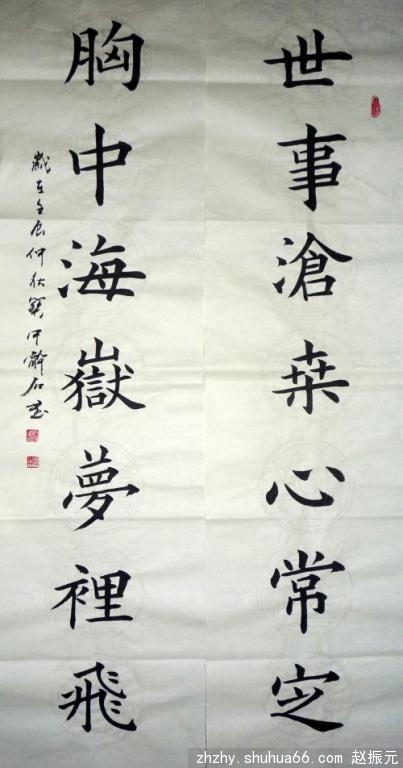 世事滄桒心常定
胸中海嶽夢裡飛
歲在壬辰仲秋
zhzhy.shuhua66.com 赵振元